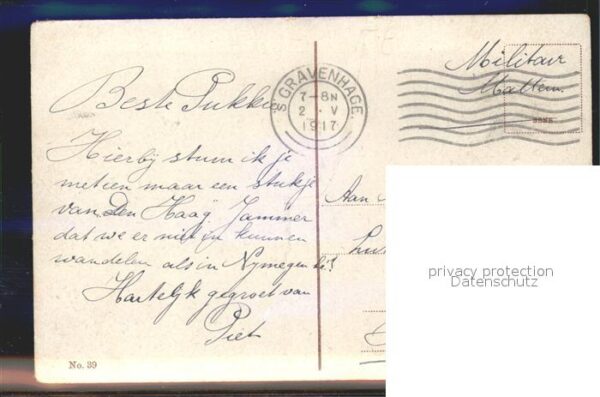 Militair
'S GRAVENHAGE.
7-8N
2 · V
1917
Beste Pukke
Hierbij stuur ik je
meteen maar een stukje
van Den Haag Jammer
dat we er niet in kunnen
wandelen als in Nymegen hè!
Hartelijk gegroet van
Piet
Aan
No. 39
privacy protection
Datenschutz